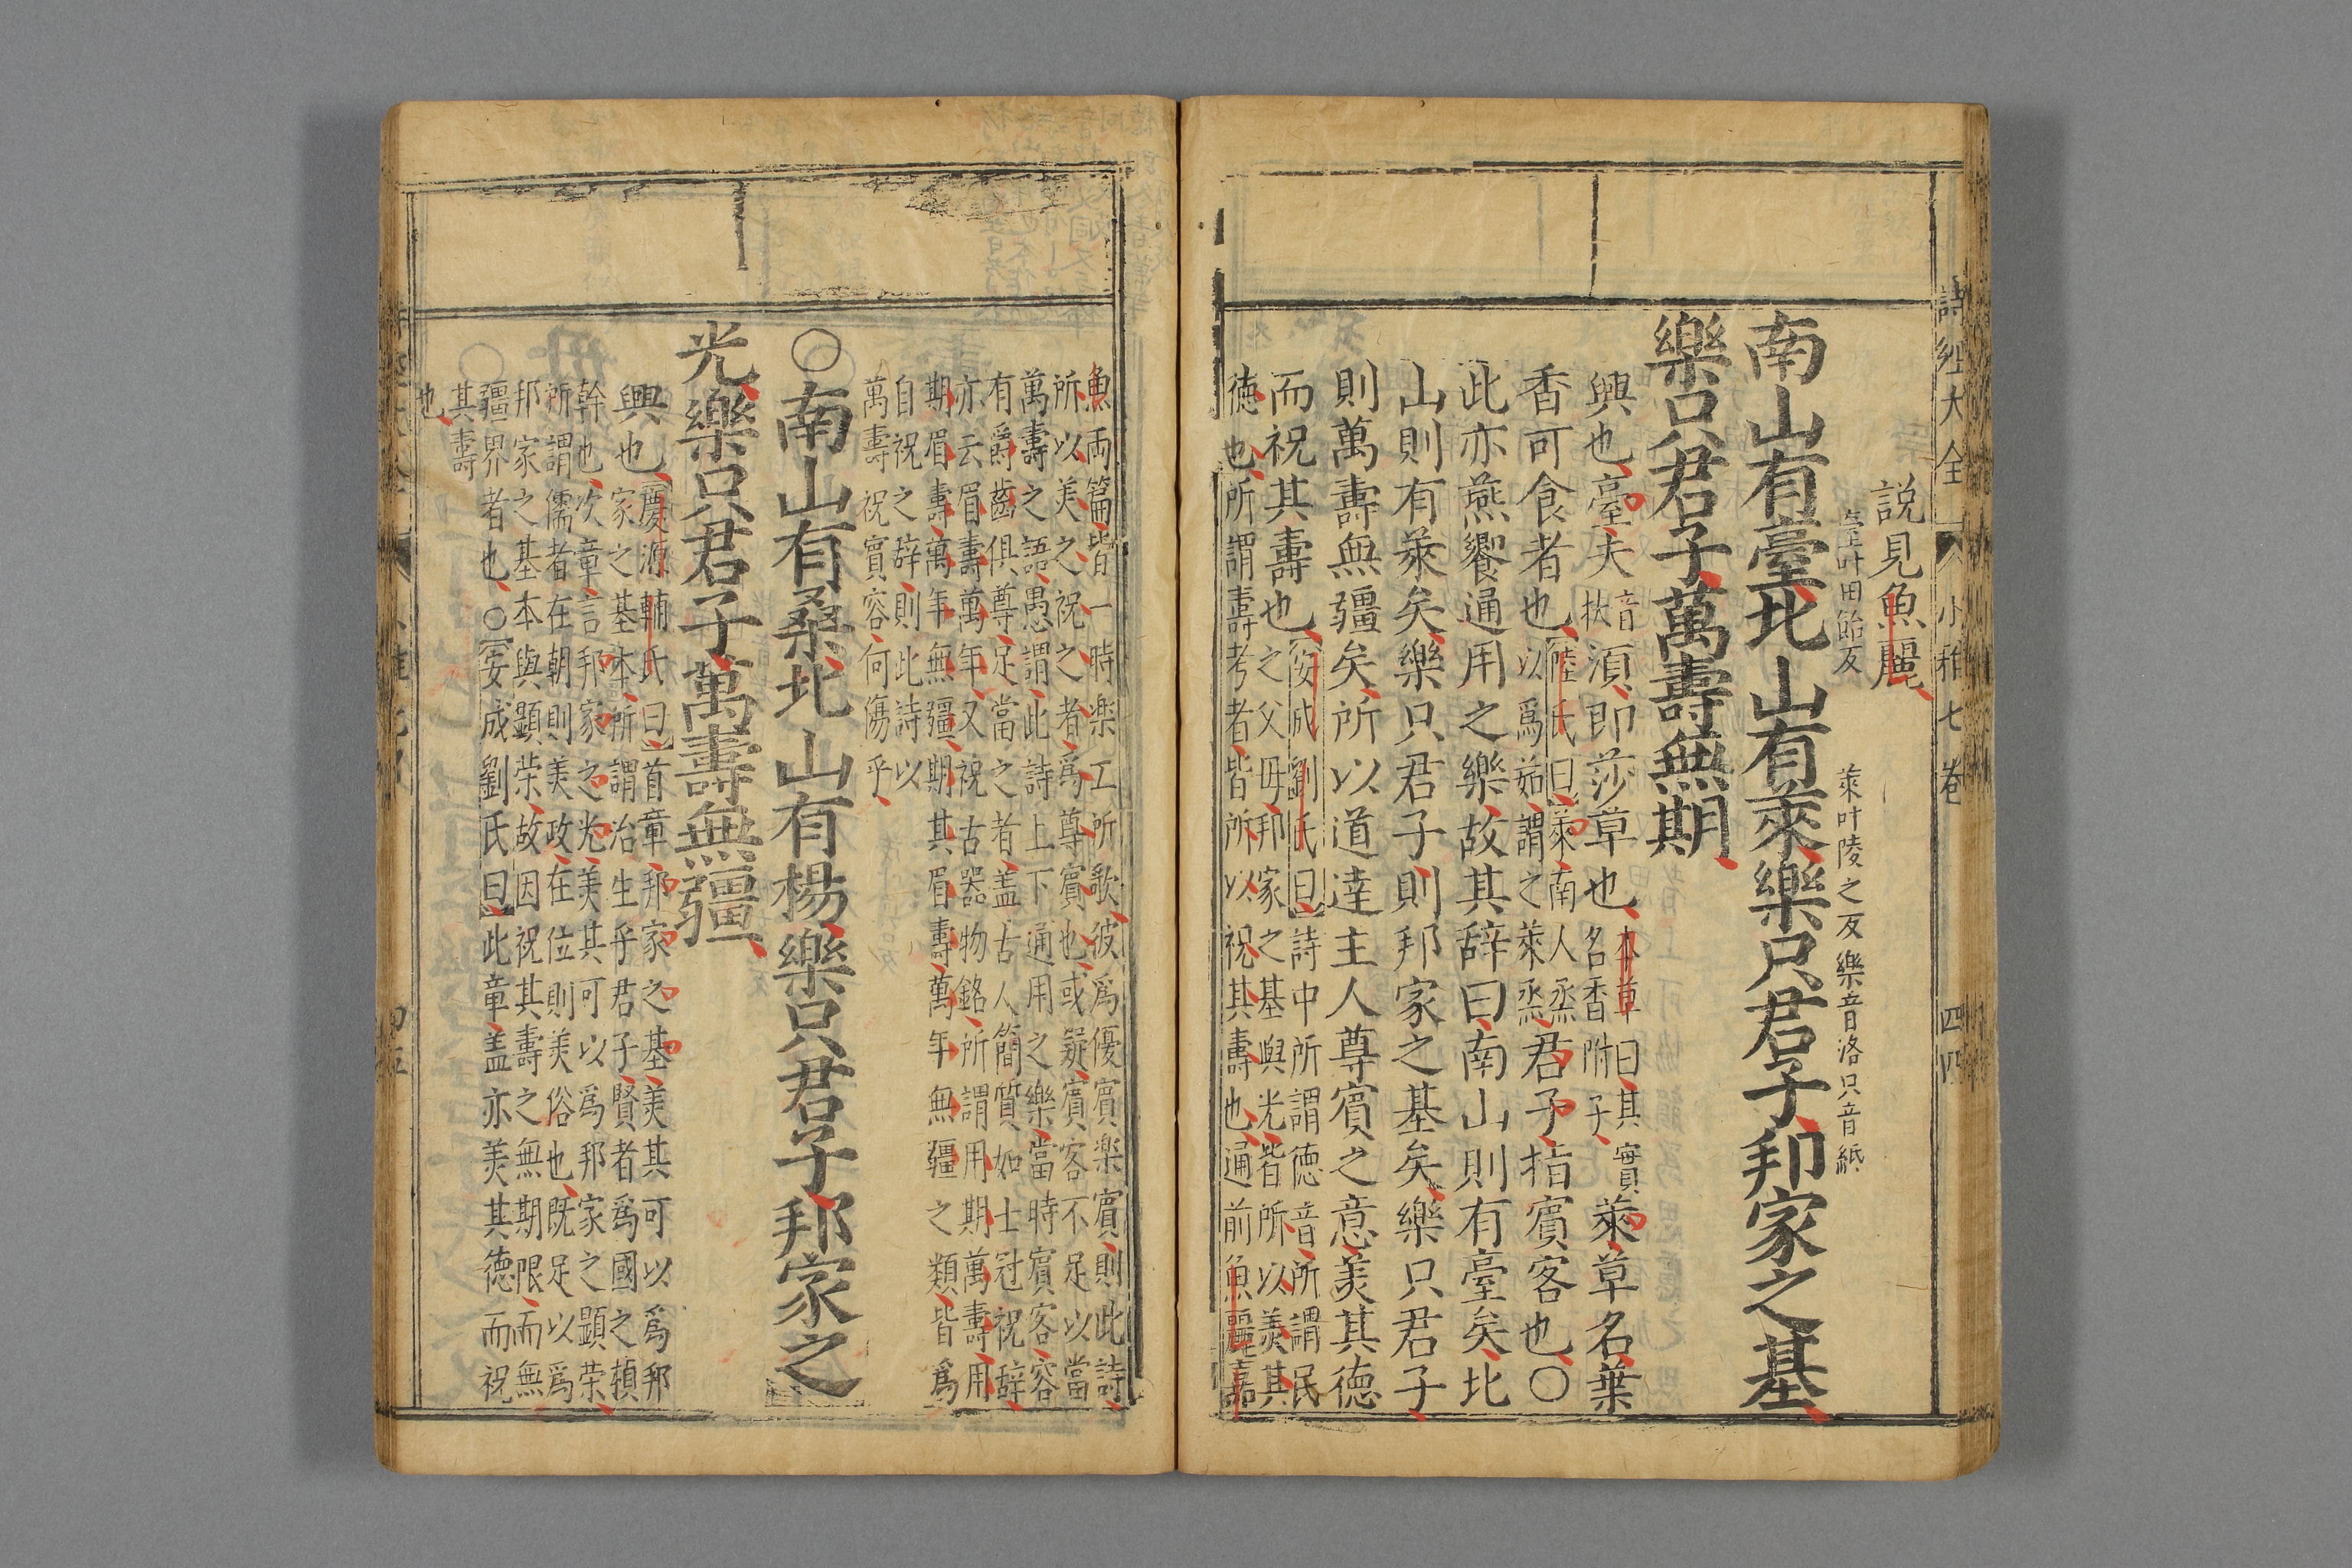 詩經大全 小雅七巻 四四
說見魚麗
臺叶田飴反 萊叶陵之反樂音洛只音紙
南山有臺北山有萊樂只君子邦家之基
樂只君子萬壽無期
興也臺夫音扶湏即莎草也本草曰其實名香附子萊草名葉
香可食者也陸氏曰萊南人烝以爲茹謂之萊烝君子指賓客也○
此亦燕饗通用之樂故其辞曰南山則有臺矣北
山則有萊矣樂只君子則邦家之基矣樂只君子
則萬壽無疆矣所以道達主人尊賓之意羙其德
而祝其壽也安成劉氏曰詩中所謂德音所謂民
之父母邦家之基與光皆所以羙其
德也所謂壽考者皆所以祝其壽也通前魚麗嘉
魚両篇皆一時楽工所歌彼爲優賓楽賓則此詩
所以美之祝之者爲尊賓也或疑賓客不足以當
萬壽之語愚謂此詩上下通用之樂當時賓客容
有爵齒俱尊足當之者盖古人簡質如士冠祝辞
亦云眉壽萬年又祝古器物銘所謂用期萬壽用
期眉壽萬年無疆期其眉壽萬年無疆之類皆爲
自祝之辞則此詩以
萬壽祝賓容何傷乎
○南山有桑北山有楊樂只君子邦家之
光樂只君子萬壽無疆
興也慶源輔氏曰首章邦家之基羙其可以爲邦
家之基本所謂治生乎君子賢者爲國之楨
幹也次章言邦家之光羙其可以爲邦家之顕荣
所謂儒者在朝則羙政在位則羙俗也既足以爲
邦家之基本與顕荣故因祝其壽之無期限而無
疆界者也○安成劉氏曰此章盖亦羙其德而祝
其壽
也